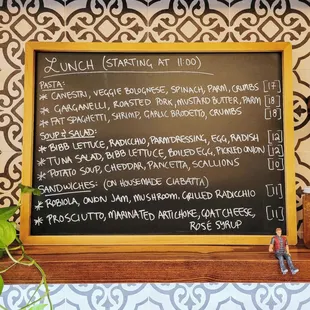 LUNCH (STARTING AT 11:00)
PASTA:
* CANESTRI, VEGGIE BOLOGNESE, SPINACH, PARM, CRUMBS [17]
* GARGANELLI, ROASTED PORK, MUSTARD BUTTER, PARM [18]
* FAT SPAGHETTI, SHRIMP, GARLIC BRODETTO, CRUMBS [18]
SOUP & SALAD:
* BIBB LETTUCE, RADICCHIO, PARM DRESSING, EGG, RADISH [12]
* TUNA SALAD, BIBB LETTUCE, BOILED EGG, PICKLED ONION [12]
* POTATO SOUP, CHEDDAR, PANCETTA, SCALLIONS [10]
SANDWICHES: (ON HOUSEMADE CIABATTA)
* ROBIOLA, ONION JAM, MUSHROOM, GRILLED RADICCHIO [11]
* PROSCIUTTO, MARINATED ARTICHOKE, GOAT CHEESE, [11]
ROSÉ SYRUP